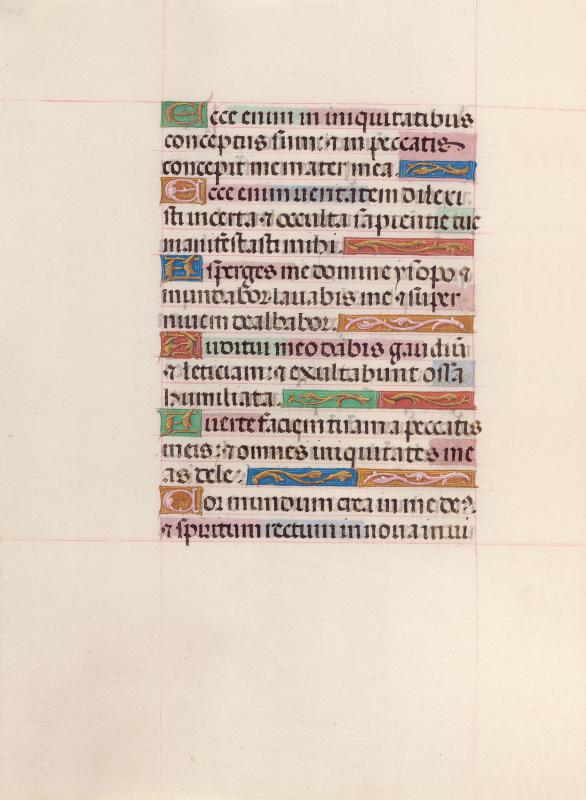 Ecce enim in iniquitatibus
conceptus sum: ⁊ in peccatis
concepit me mater mea.
Ecce enim veritatem dilexi
sti incerta ⁊ occulta sapientie tue
manifestasti mihi.
Asperges me domine ysopo ⁊
mundabor lavabis me ⁊ super
nivem dealbabor.
Auditui meo dabis gaudiū
⁊ leticiam: ⁊ exultabunt ossa
humiliata.
Averte faciem tuam a peccatis
meis: ⁊ omnes iniquitates me
as dele:
Cor mundum crea in me de9.
⁊ spiritum rectum innova in vi